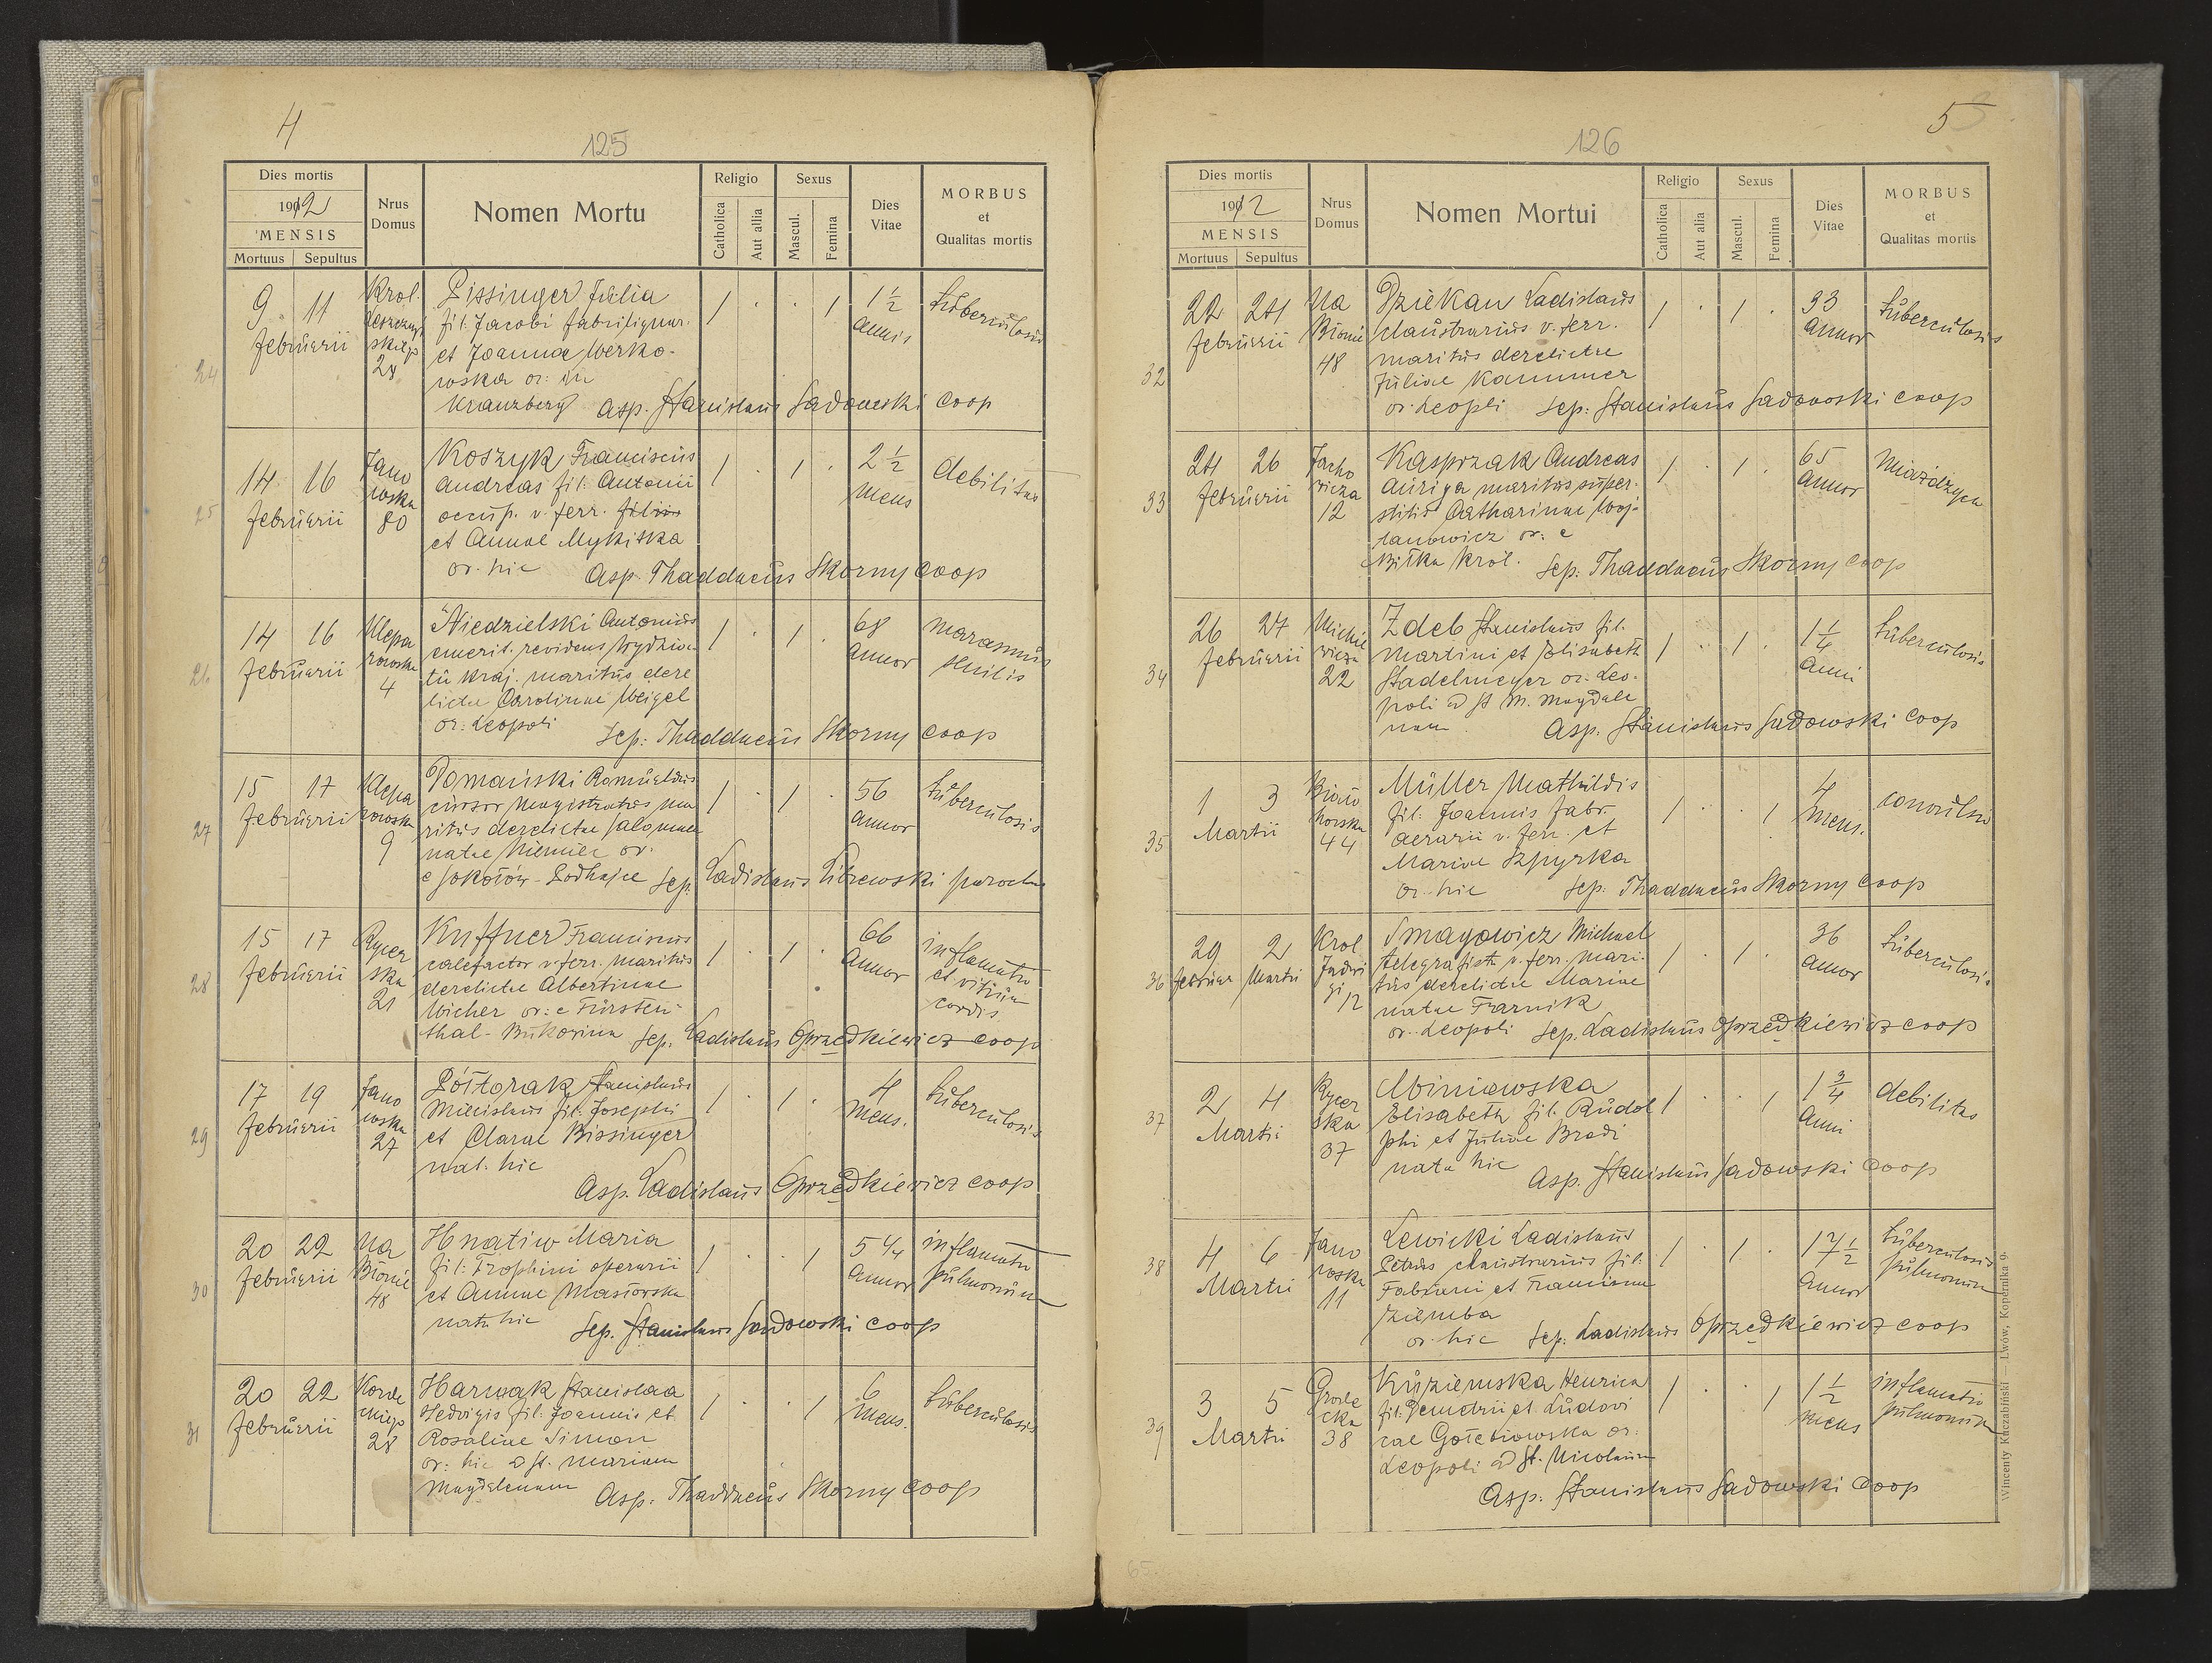 4
125
Dies mortis
1912
MENSIS
Mortuus Sepultus
Nrus Domus
Nomen Mortu
Religio
Catholica Aut allia
Sexus
Mascul. Femina
Dies Vitae
MORBUS
et
Qualitas mortis
24
9 11
Februarii
Krol.
28
Pissinger Julia
fil. Jacobi fabrilignar.
et Joannae Werko-
wska or: in
Kranzberg Asp. Stanislaus Sadowski coop
1 . . 1
1 1/2
annis
tuberculosis
25
14 16
Februarii
Jano
wska
80
Koszyk Franciscus
Andreas fil. Antonii
occup. v. ferr.
et Annae Mykitka
or. hic Asp. Thaddaeus Skorny coop
1 . 1 .
2 1/2
mens
debilitas
26
14 16
Februarii
Klepa
rowska
4
Niedzielski Antonius
emerit. revidens Wydzia-
łu Kraj. maritus dere
lictae Carolinae Weigel
or: Leopoli Sep: Thaddaeus Skorny coop
1 . 1 .
68
annor
marasmus
senilis
27
15 17
Februarii
Klepa
rowska
9
Pomański Romualdus
cursor Magistratus ma
ritus derelictae Salomeae
natae Niemiec or.
e Sokołów - Podhajce Sep. Ladislaus Librewski paroch
1 . 1 .
56
annor
tuberculosis
28
15 17
Februarii
Rycer
ska
21
Kuffner Franciscus
calefactor v. ferr. maritus
derelictae Albertinae
Wicher or: e Fürsten-
thal - Bukowina Sep. Ladislaus Oprzędkiewicz coop
1 . 1 .
66
annor
inflamatio
et vitium
cordis
29
17 19
Februarii
Jano
wska
27
Półtorak Stanislaus
Miecislaus fil. Josephi
et Clarae Bissinger
nat. hic
Asp. Ladislaus Oprzędkiewicz coop
1 . 1 .
4
mens.
tuberculosis
30
20 22
Februarii
Na
Błonie
48
Hnatiw Maria
fil: Trophini operarii
et Annae Masiorska
nata hic Sep. Stanislaus Sadowski coop
1 . . 1
5 1/4
annor
inflamatio
pulmonum
31
20 22
Februarii
Korde
ckiego
28
Harwak Stanislaa
Hedvigis fil: Joannis et
Rosaliae Simon
or: hic ad St. Mariam
Magdalenam Asp: Thaddaeus Skorny coop
1 . . 1
6
mens.
tuberculosis
5
126
Dies mortis
1912
MENSIS
Mortuus Sepultus
Nrus Domus
Nomen Mortui
Religio
Catholica Aut alia
Sexus
Mascul. Femina
Dies Vitae
MORBUS
et
Qualitas mortis
32
22 24
Februarii
Na
Błonie
48
Dziekan Ladislaus
claustrarius v. ferr.
maritus derelictae
Juliae Kammer
or. Leopli Sep: Stanislaus Sadowski coop
1 . 1 .
33
annor
tuberculosis
33
24 26
Februarii
Jacho
wicza
12
Kasprzak Andreas
auriga maritus super-
stitis Catharinae Woj-
tanowicz or: e
Biłka Król. Sep: Thaddaeus Skorny coop
1 . 1 .
65
annor
Miażdżyca
34
26 27
Februarii
Mickie
wicza
22
Zdeb Stanislaus fil.
Martini et Elisabeth
Stadelmeyer or: Leo-
poli ad St M. Magdale
nam Asp. Stanislaus Sadowski coop
1 . 1 .
1 1/4
anni
tuberculosis
35
1 3
Martii
44
Müller Mathildis
fil: Joannis fabr.
aerarii v. ferr. et
Mariae Szpyrka
or. hic Sep: Thaddaeus Skorny coop
1 . . 1
4
mens.
convulsio
36
29 2
Februar Martii
Krol
Jadwi
gi 12
Smagowicz Michael
telegrafista v. ferr. mari-
tus derelictae Mariae
natae Farnik
or. Leopoli Sep. Ladislaus Oprzędkiewicz coop
1 . 1 .
36
annor
tuberculosis
37
2 4
Martii
Rycer
ska
37
Winiowska
Elisabeth fil. Rudol
phi et Juliae Brodi
nata hic
Asp. Stanislaus Sadowski coop
1 . . 1
1 3/4
anni
debilitas
38
4 6
Martii
Jano
wska
11
Lewicki Ladislaus
Petrus claustrarius fil.
Fabiani et Franciscae
Ziemba
or. hic Sep: Ladislaus Oprzędkiewicz coop
1 . 1 .
17 1/2
annor
tuberculosis
pulmonum
39
3 5
Martii
Grode
cka
38
Kuziemska Henrica
fil: Demetrii et Ludovi
cae Gołębiowska or:
Leopoli ad St. Nicolaum
Asp: Stanislaus Sadowski coop
1 . . 1
1 1/2
mens
inflamatio
pulmonum
Wincenty Kuczabiński — Lwów, Kopernika 9.